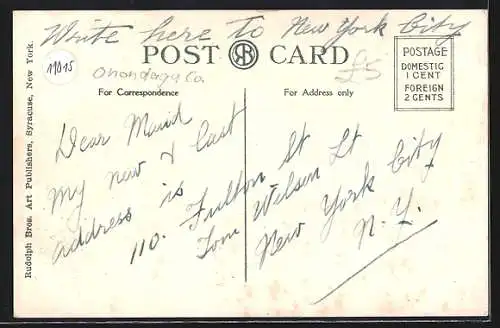 Write here to New York City
POST RB CARD
19015
Onondaga Co.
£5
POSTAGE
DOMESTIC
1 CENT
FOREIGN
2 CENTS
For Correspondence
For Address only
Dear Maud
My new & last
address is
110. Fulton St
Tom Welsen Lt
New York City
N.Y.
Rudolph Bros. Art Publishers, Syracuse, New York.